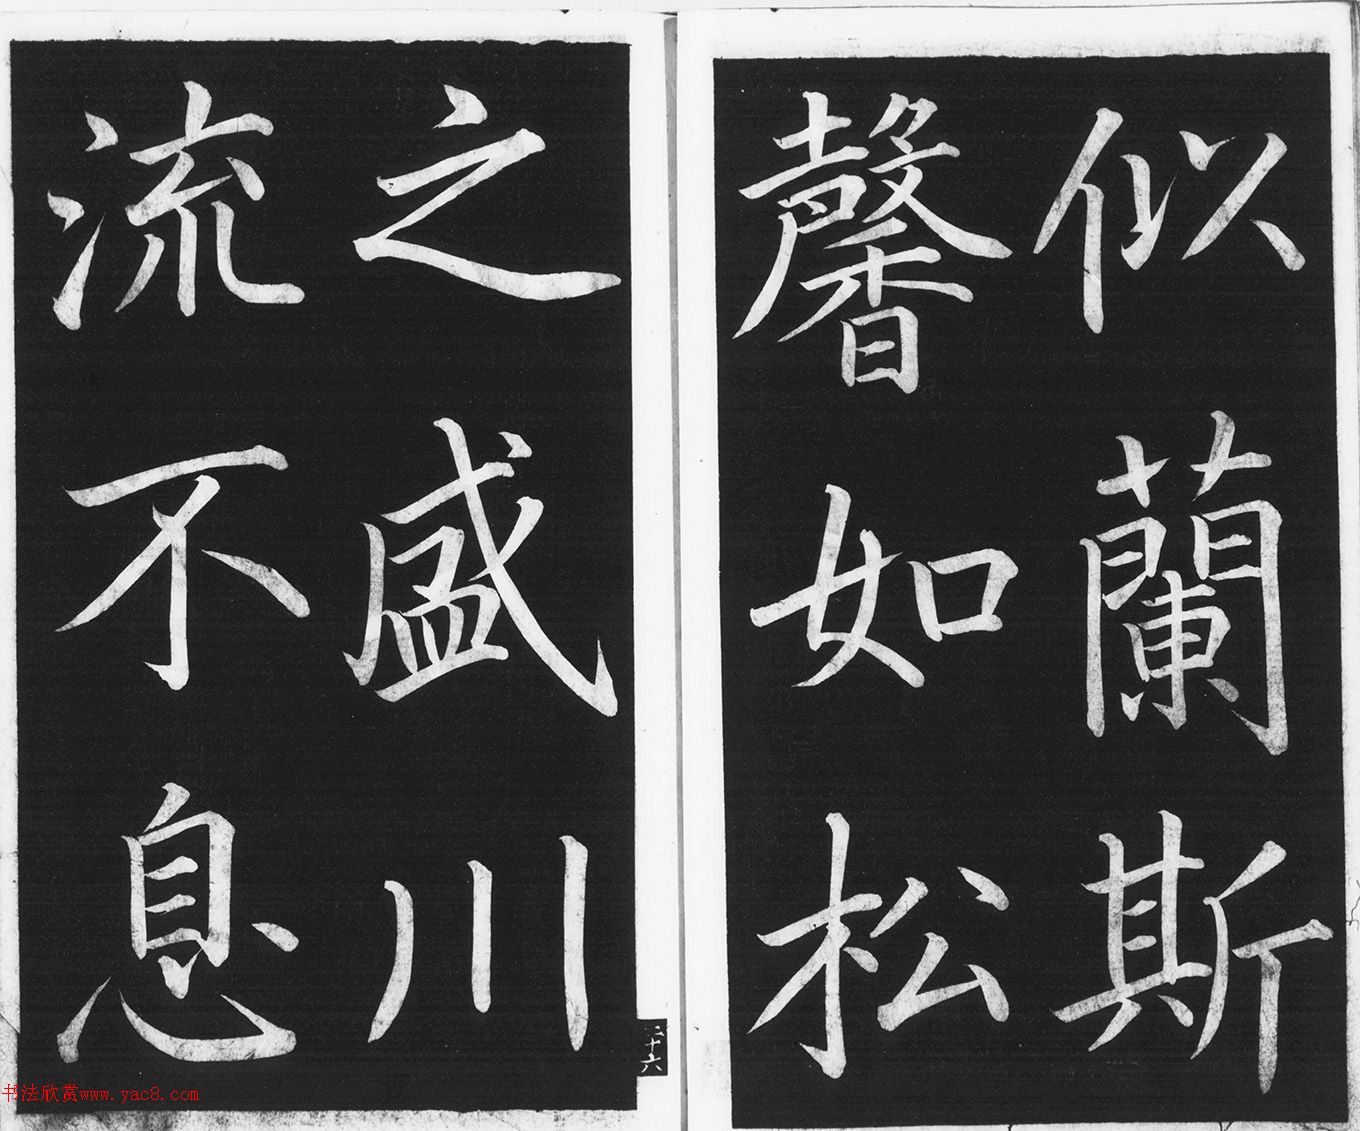 似蘭斯
馨如松
之盛川
流不息
二十六
书法欣赏www.yac8.com